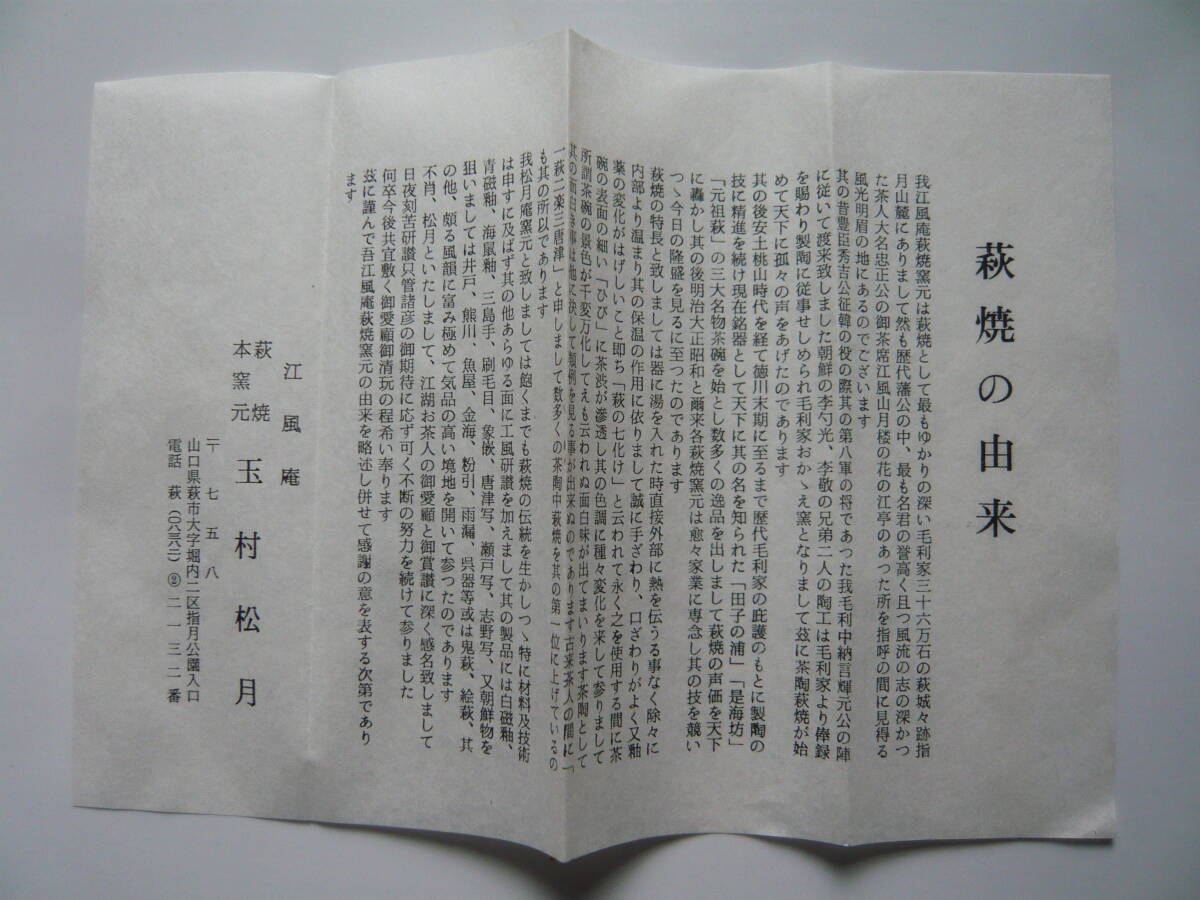 萩焼の由来
我江風庵萩焼窯元は萩焼として最もゆかりの深い毛利家三十六万石の萩城々跡指
月山麓にありまして然も歴代藩公の中、最も名君の誉高く且つ風流の志の深かつ
た茶人大名忠正公の御茶席江風山月楼の花の江亭のあった所を指呼の間に見得る
風光明眉の地にあるのでございます
其の昔豊臣秀吉公征韓の役の際其の第八軍の将であった我毛利中納言輝元公の陣
に従いて渡来致しました朝鮮の李勺光、李敬の兄弟二人の陶工は毛利家より俸録
を賜わり製陶に従事せしめられ毛利家おかゝえ窯となりまして茲に茶陶萩焼が始
めて天下に孤々の声をあげたのであります
其の後安土桃山時代を経て徳川末期に至るまで歴代毛利家の庇護のもとに製陶の
技に精進を続け現在銘器として天下に其の名を知られた「田子の浦」「是海坊」
「元祖萩」の三大名物茶碗を始とし数多くの逸品を出しまして萩焼の声価を天下
に轟かし其の後明治大正昭和と爾来各萩焼窯元は愈々家業に専念し其の技を競い
つゝ今日の隆盛を見るに至つたのであります
萩焼の特長と致しましては器に湯を入れた時直接外部に熱を伝うる事なく除々に
内部より温まり其の保温の作用に依りまして誠に手ざわり、口ざわりがよく又釉
薬の変化がはげしいこと即ち「萩の七化け」と云われて永く之を使用する間に茶
碗の表面の細い「ひび」に茶渋が滲透し其の色調に種々変化を来して参りまして
所謂茶碗の景色が千変万化してえも云われぬ面白味が出てまいります茶陶として
其の面白き事は他に決して類例を見る事が出来ぬのであります古来茶人の間に「
一萩二楽三唐津」と申しまして数多くの茶陶中萩焼を其の第一位に上げているの
も其の所以であります
我松月庵窯元と致しましては飽くまでも萩焼の伝統を生かしつゝ特に材料及技術
は申すに及ばず其の他あらゆる面に工風研讃を加えまして其の製品には白磁釉、
青磁釉、海鼠釉、三島手、刷毛目、象嵌、唐津写、瀬戸写、志野写、又朝鮮物を
狙いましては井戸、熊川、魚屋、金海、粉引、雨漏、呉器等或は鬼萩、絵萩、其
の他、頗る風韻に富み極めて気品の高い境地を開いて参つたのであります
不肖、松月といたしまして、江湖お茶人の御愛顧と御賞讃に深く感名致しまして
日夜刻苦研讃只管諸彦の御期待に応ず可く不断の努力を続けて参りました
何卒今後共宜敷く御愛顧御清玩の程希い奉ります
茲に謹んで吾江風庵萩焼窯元の由来を略述し併せて感謝の意を表する次第であり
ます
江風庵
萩焼
本窯元
玉村松月
〒七五八
山口県萩市大字堀内二区指月公園入口
電話 萩(〇八三八二)②二一三二番